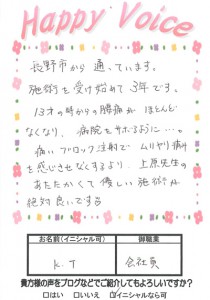 Happy Voice
長野市から 通っています。
施術を受け始めて3年です。
13才の時からの腰痛が ほとんど
なくなり、病院をサボるように…。
痛いブロック注射で ムリヤリ痛み
を感じさせなくするより、上原先生の
あたたかくて優しい施術が
絶対良いです
お名前(イニシャル可)
御職業
K.T
会社員
貴方様の声をブログなどでご紹介してもよろしいですか?
□はい □いいえ ☑イニシャルなら可